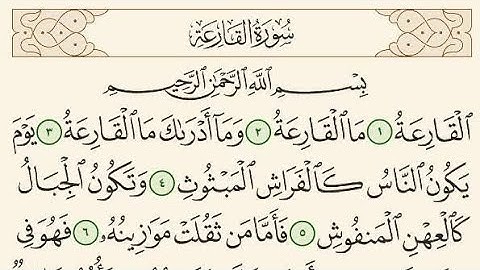 سُورَةُ القَارِعَةِ
بِسْمِ ٱللَّهِ ٱلرَّحْمَٰنِ ٱلرَّحِيمِ
ٱلْقَارِعَةُ ١ مَا ٱلْقَارِعَةُ ٢ وَمَآ أَدْرَىٰكَ مَا ٱلْقَارِعَةُ ٣ يَوْمَ
يَكُونُ ٱلنَّاسُ كَٱلْفَرَاشِ ٱلْمَبْثُوثِ ٤ وَتَكُونُ ٱلْجِبَالُ
كَٱلْعِهْنِ ٱلْمَنفُوشِ ٥ فَأَمَّا مَن ثَقُلَتْ مَوَٰزِينُهُۥ ٦ فَهُوَ فِي